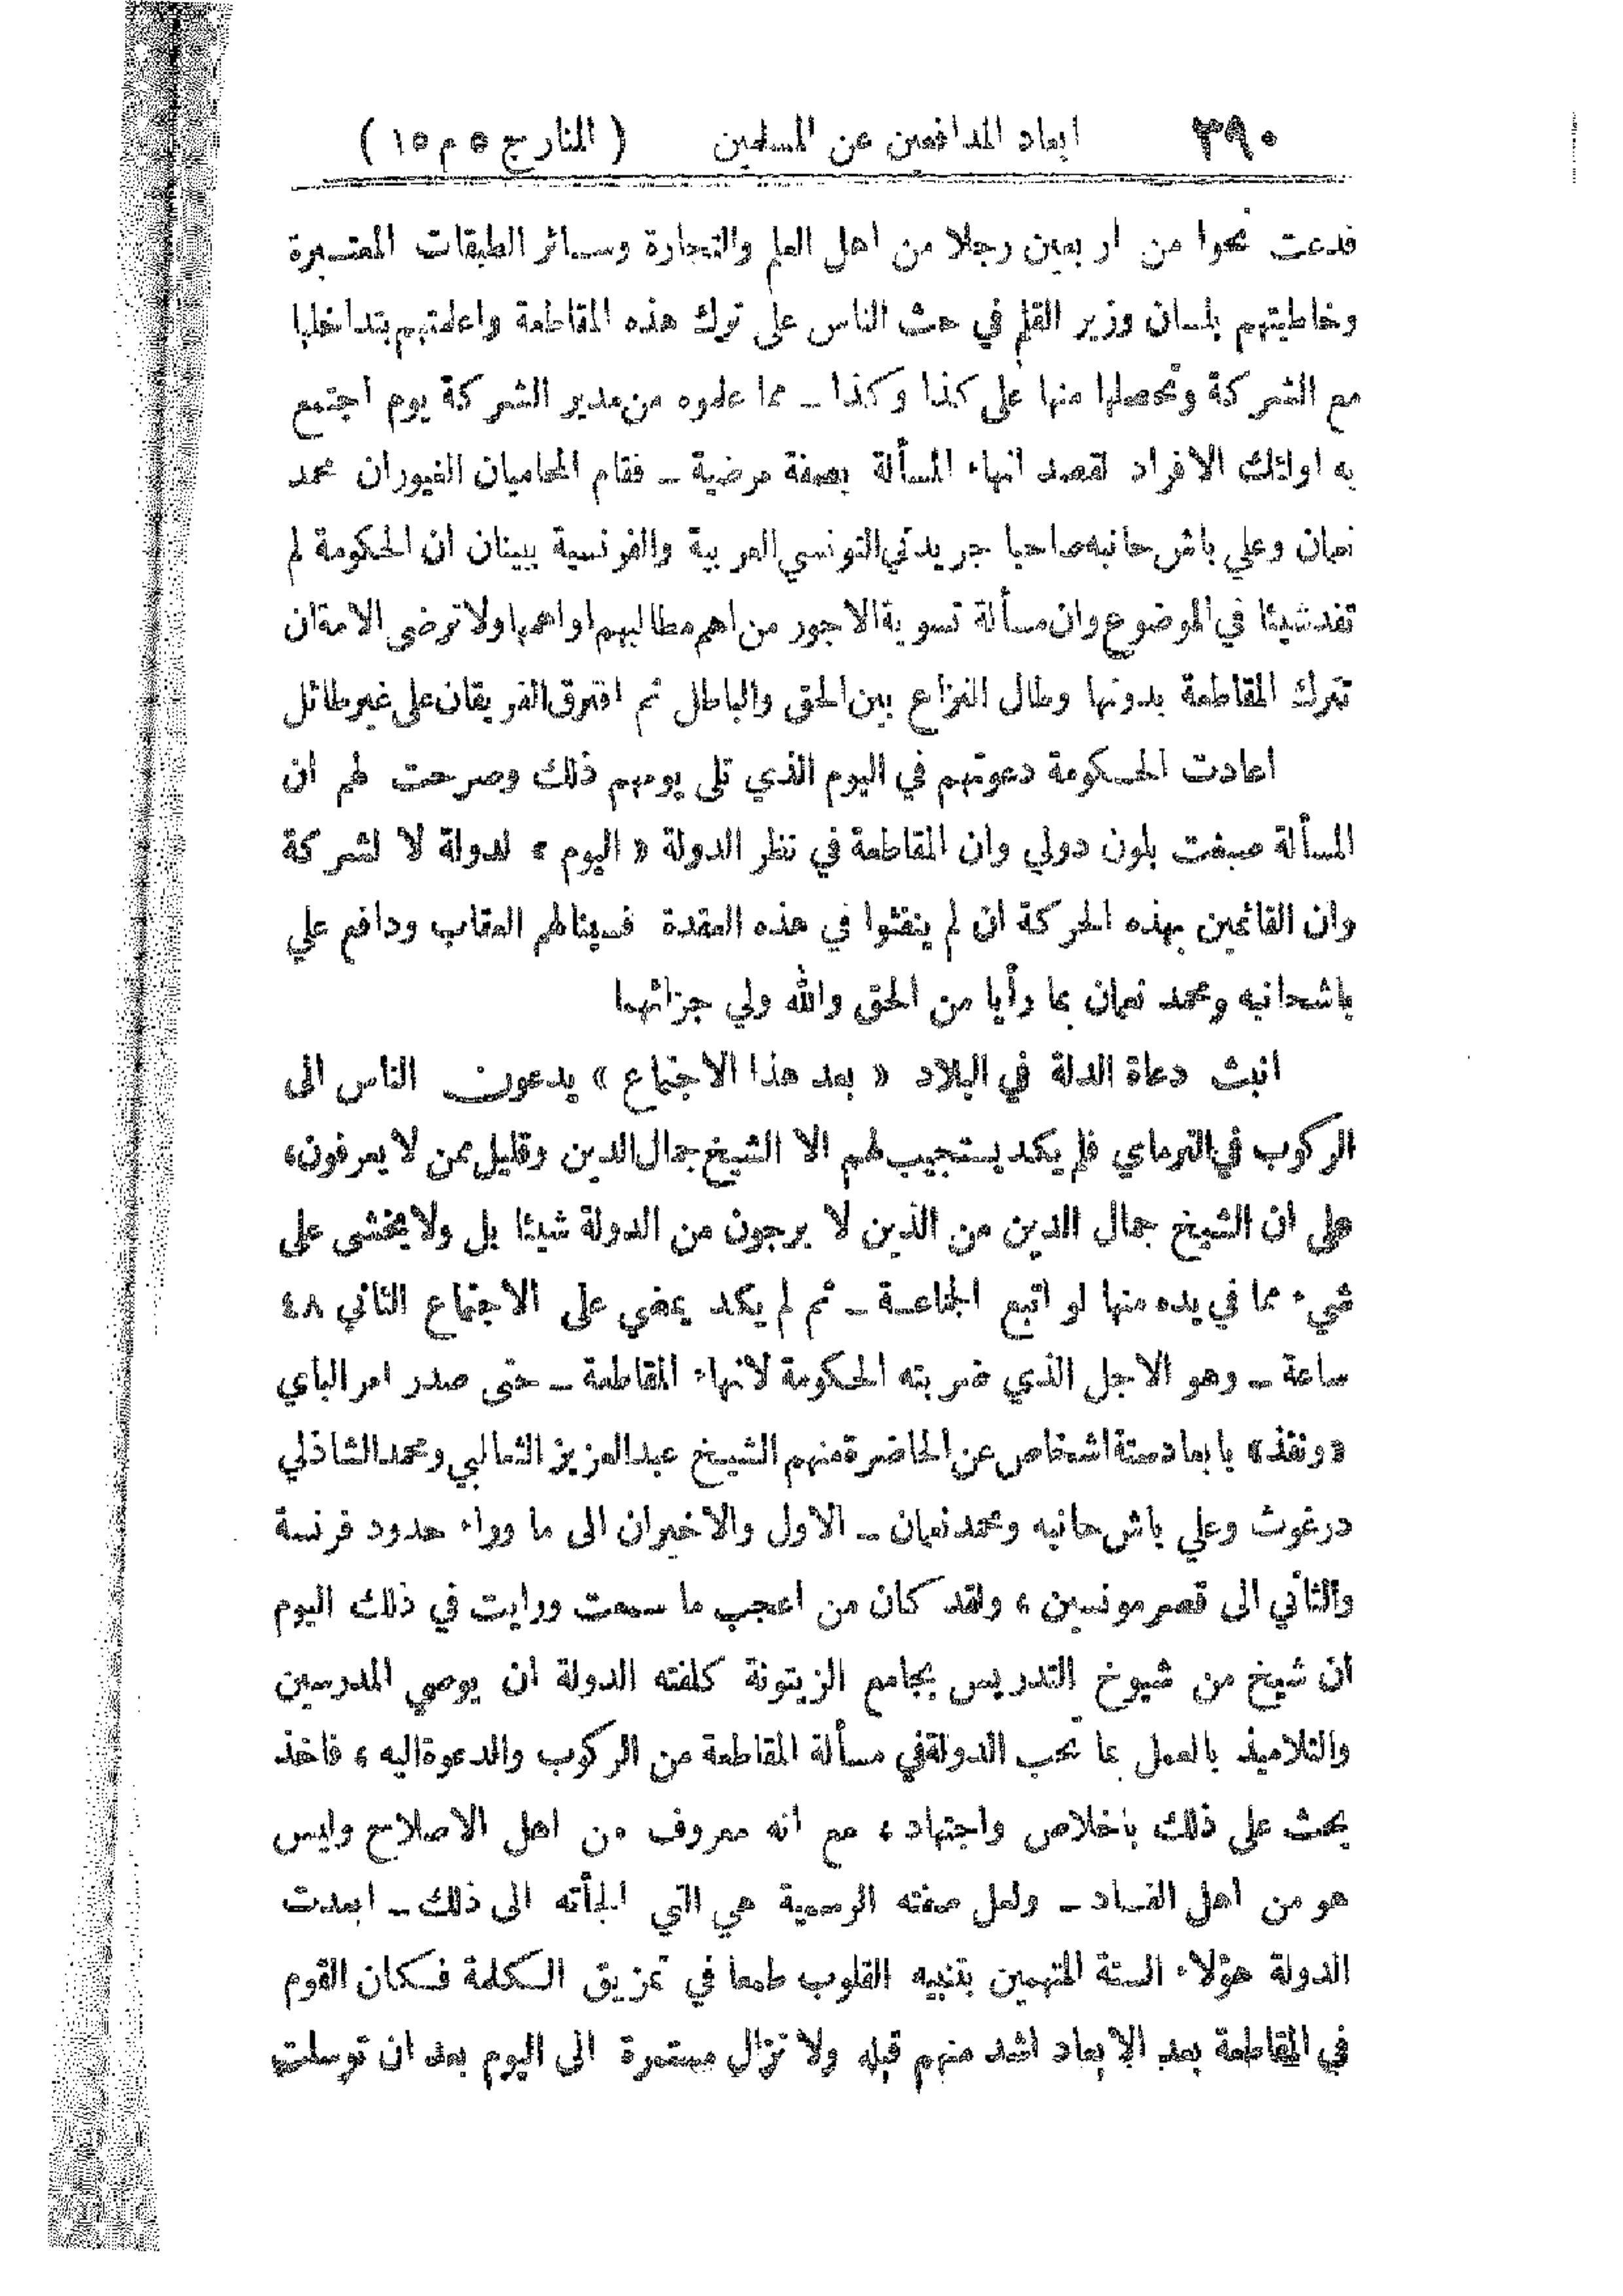 ٣٩٠ ابعاد المدافعين عن المسلمين ( المنار ج ٥ م ١٥ )
فدعت نحوا من اربعين رجلا من اهل العلم والتجارة وسائر الطبقات المعتبرة
وخاطبتهم بلسان وزير القلم في حث الناس على ترك هذه المقاطعة واعلمتهم بتداخلها
مع الشركة وتحصلها منها على كذا وكذا ــ مما علموه من مدير الشركة يوم اجتمع
به اولئك الافراد لقصد انهاء المسألة بصفة مرضية ــ فقام المحاميان الغيوران محمد
نعمان وعلي باش حانبه صاحبا جريدتي التونسي العربية والفرنسية يبينان ان الحكومة لم
تفد شيئا في الموضوع وان مسألة تسوية الاجور من اهم مطالبهم او اهمها ولا ترضى الامة ان
تترك المقاطعة بدونها وطال النزاع بين الحق والباطل ثم افترق الفريقان على غير طائل
اعادت الحكومة دعوتهم في اليوم الذي تلى يومهم ذلك وصرحت لهم ان
المسألة صبغت بلون دولي وان المقاطعة في نظر الدولة « اليوم » لدولة لا لشركة
وان القائمين بهذه الحركة ان لم ينفثوا في هذه العقدة فسينالهم العقاب ودافع علي
باشحانبه ومحمد نعمان بما رأيا من الحق والله ولي جزائهما
انبث دعاة الدلة في البلاد « بعد هذا الاجتماع » يدعون الناس الى
الركوب في الترماي فلم يكد يستجيب لهم الا الشيخ جمال الدين وقليل ممن لا يعرفون،
على ان الشيخ جمال الدين من الذين لا يرجون من الدولة شيئا بل ولا يخشى على
شيء مما في يده منها لو اتبع الجماعة ــ ثم لم يكد يمضي على الاجتماع الثاني ٤٨
ساعة ــ وهو الاجل الذي ضربته الحكومة لانهاء المقاطعة ــ حتى صدر امر الباي
«ونفذ» بابعاد ستة اشخاص عن الحاضرة منهم الشيخ عبد العزيز الثعالبي ومحمد الشاذلي
درغوث وعلي باش حانبه ومحمد نعمان ــ الاول والاخيران الى ما وراء حدود فرنسة
والثاني الى قصر مونسين ، ولقد كان من اعجب ما سمعت ورايت في ذلك اليوم
ان شيخ من شيوخ التدريس بجامع الزيتونة كلفته الدولة ان يوصي المدرسين
والتلاميذ بالعمل بما تحب الدولة في مسألة المقاطعة من الركوب والدعوة اليه ، فاخذ
يحث على ذلك باخلاص واجتهاد ، مع انه معروف من اهل الاصلاح وليس
هو من اهل الفساد ــ ولعل صفته الرسمية هي التي الجأته الى ذلك ــ ابعدت
الدولة هؤلاء الستة المتهمين بتنبيه القلوب طمعا في تمزيق الكلمة فكان القوم
في المقاطعة بعد الابعاد اشد منهم قبله ولا تزال مستمرة الى اليوم بعد ان توسلت